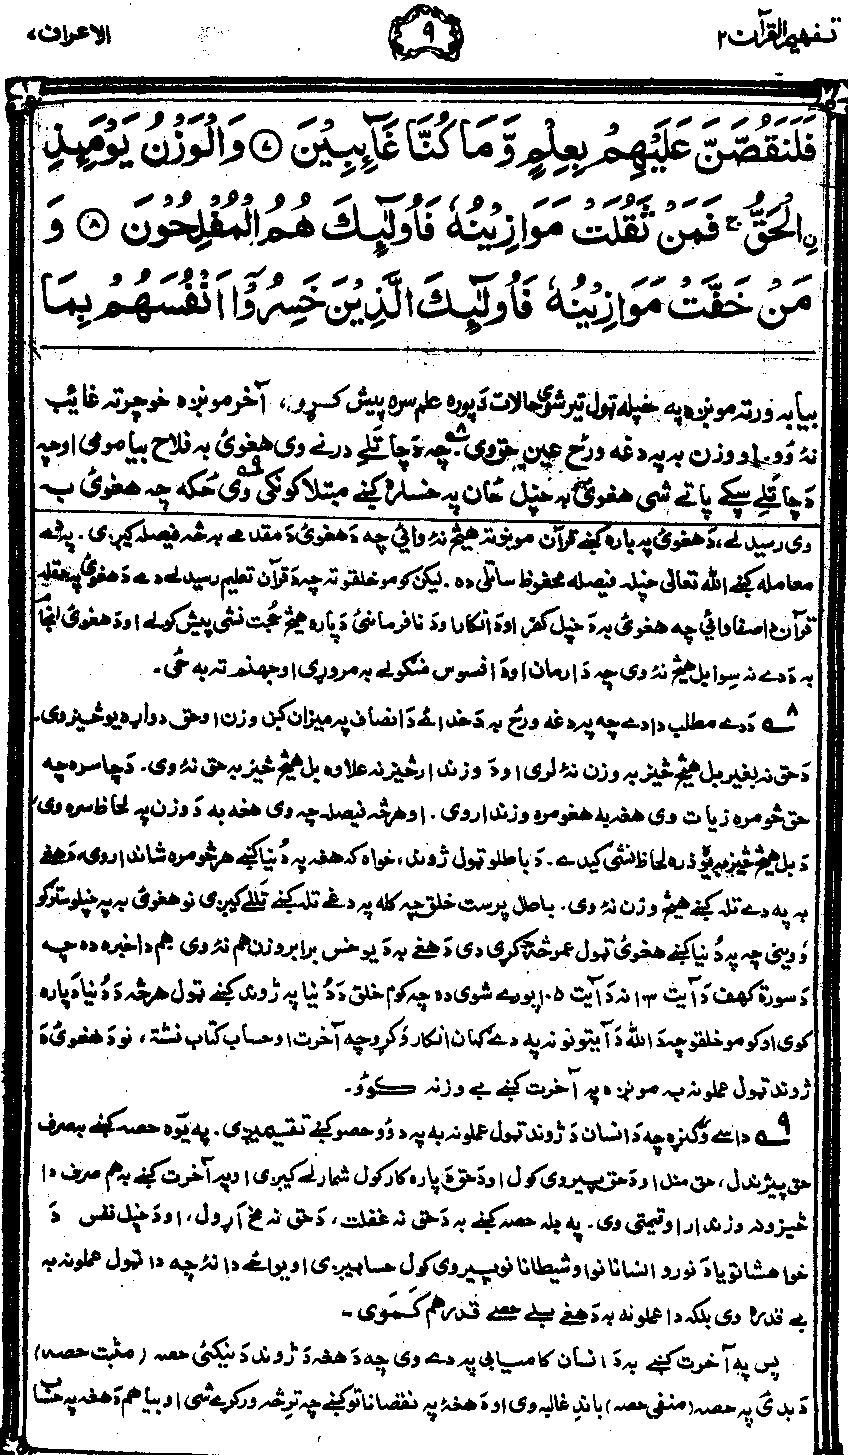 تفهيم القرآن ۲
۹
الاعراف ۷
فَلَنَقُصَّنَّ عَلَيْهِمْ بِعِلْمٍ وَّمَا كُنَّا غَآىِٕبِيْنَ ﴿۷﴾ وَالْوَزْنُ يَوْمَىِٕذِ
نِ الْحَقُّ ۚ فَمَنْ ثَقُلَتْ مَوَازِيْنُهٗ فَاُولٰٓىِٕكَ هُمُ الْمُفْلِحُوْنَ ﴿۸﴾ وَ
مَنْ خَفَّتْ مَوَازِيْنُهٗ فَاُولٰٓىِٕكَ الَّذِيْنَ خَسِرُوْٓا اَنْفُسَهُمْ بِمَا
بيا به ورته مونږه په خپله ټول تير شوى حالات دَ پوره علم سره پيش كړو، آخر مونږه خو چرته غائب
نهٔ وُو. او وزن به په دغه ورځ عين حق وى.۸ چه دَ چا تلے درنے وى هغوىٔ به فلاح بيا مومى او چه
دَ چا تلے سپكے پاتے شى هغوىٔ به خپل ځان په خساره كښے مبتلا كونكى وى۹ ځكه چه هغوىٔ به
وى رسيدلے، دَ هغوىٔ په باره كښے قرآن مونږ ته هيڅ نهٔ وائي چه دَ هغوىٔ دَ مقدمے به څه فيصله كيږى. په دے
معامله كښے الله تعالىٰ خپله فيصله محفوظ ساتلى ده. ليكن كومو خلقو ته چه دَ قرآن تعليم رسيدلے دے دَ هغوىٔ په متعلق
قرآن واصفا وائي چه هغوىٔ به دَ خپل كفر او دَ انكار او دَ نافرمانئ دَ پاره هيڅ حجت نشى پيش كولے او دَ هغوىٔ انجام
به دَ دے نه سوا بل هيڅ نهٔ وى چه دَ ارمان او دَ افسوس منگولے به مروړى او جهنم ته به ځى.
۸ دَ دے مطلب دا دے چه په دغه ورځ به دَ خدائے دَ انصاف په ميزان كښ وزن او حق دواړه يو څيز وى.
دَ حق نه بغير بل هيڅ څيز به وزن نهٔ لرى او دَ وزندار څيز نه علاوه بل هيڅ څيز به حق نهٔ وى. دَ چا سره چه
حق څومره زيات وى هغه به هغومره وزندار وى. او هر څه فيصله چه وى هغه به دَ وزن په لحاظ سره وى،
دَ بل هيڅ څيز به يو ذره لحاظ نشى كيدے. دَ باطلو ټول ژوند، خواه كه هغه په دُنيا كښے هر څومره شاندار وى، دَ هغے
به په دے تله كښے هيڅ وزن نهٔ وى. باطل پرست خلق چه كله په دغے تله كښے تللے كيږى نو هغوىٔ به په خپلو سترگو
وُوينى چه په دُنيا كښے هغوىٔ ټول عمر څه كړى دى دَ هغے به دَ يو خس برابر وزن هم نهٔ وى. هم دا خبره ده چه
دَ سورة كهف دَ آيت ۱۰۳ نه دَ آيت ۱۰۵ پورے شوى ده چه كوم خلق دَ دُنيا په ژوند كښے ټول هر څه دَ دُنيا دَ پاره
كوى او كومو خلقو چه دَ الله دَ آيتونو نه په دے گمان انكار وُكړو چه آخرت او حساب كتاب نشته، نو دَ هغوىٔ دَ
ژوند ټول عملونه به مونږه په آخرت كښے بے وزنه گڼو.
۹ داسے وُگنړه چه دَ انسان دَ ژوند ټول عملونه به په دوو حصو كښے تقسيميږى. په يوه حصه كښے به صرف
حق پيژندل، حق منل او دَ حق پيروى كول او دَ حق دَ پاره كار كول شمارلے كيږى او په آخرت كښے به هم صرف دا
څيزونه وزندار او قيمتى وى. په بله حصه كښے به دَ حق نه غفلت، دَ حق نه مخ آړول، او دَ خپل نفس دَ
خواهشاتو يا دَ نورو انسانانو او شيطانانو پيروى كول حسابيږى او يوائے دا نهٔ چه دا ټول عملونه به
بے قدره وى بلكه دا عملونه به دَ هغے بلے حصے قدر هم كموى.
پس په آخرت كښے به دَ انسان كاميابى په دے وى چه دَ هغه دَ ژوند دَ نيكئ حصه (مثبت حصه)
دَ بدئ په حصه (منفى حصه) باندِ غالبه وى او دَ هغه په نقصاناتو كښے چه ترڅه وركړے شى او بيا هم دَ هغه په حساب